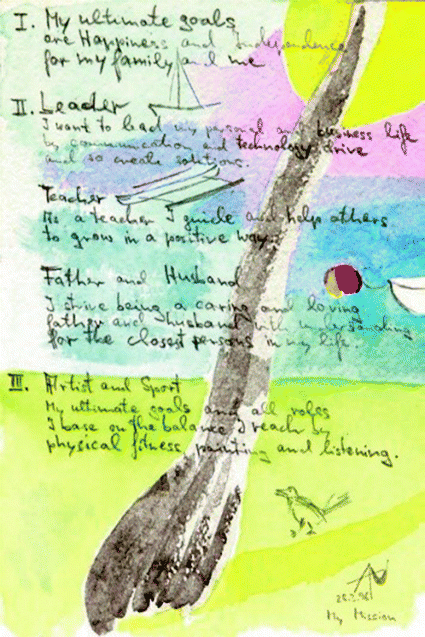 I. My ultimate goals
are Happiness and Independence
for my family and me
II. Leader
I want to lead my personal and business life
by communication and technology drive
and so create solutions.
Teacher
As a teacher I guide and help others
to grow in a positive way.
Father and Husband
I strive being a caring and loving
father and husband with understanding
for the closest persons in my life.
III. Artist and Sport
My ultimate goals and all roles
I base on the balance I reach by
physical fitness, painting and listening.
My Mission